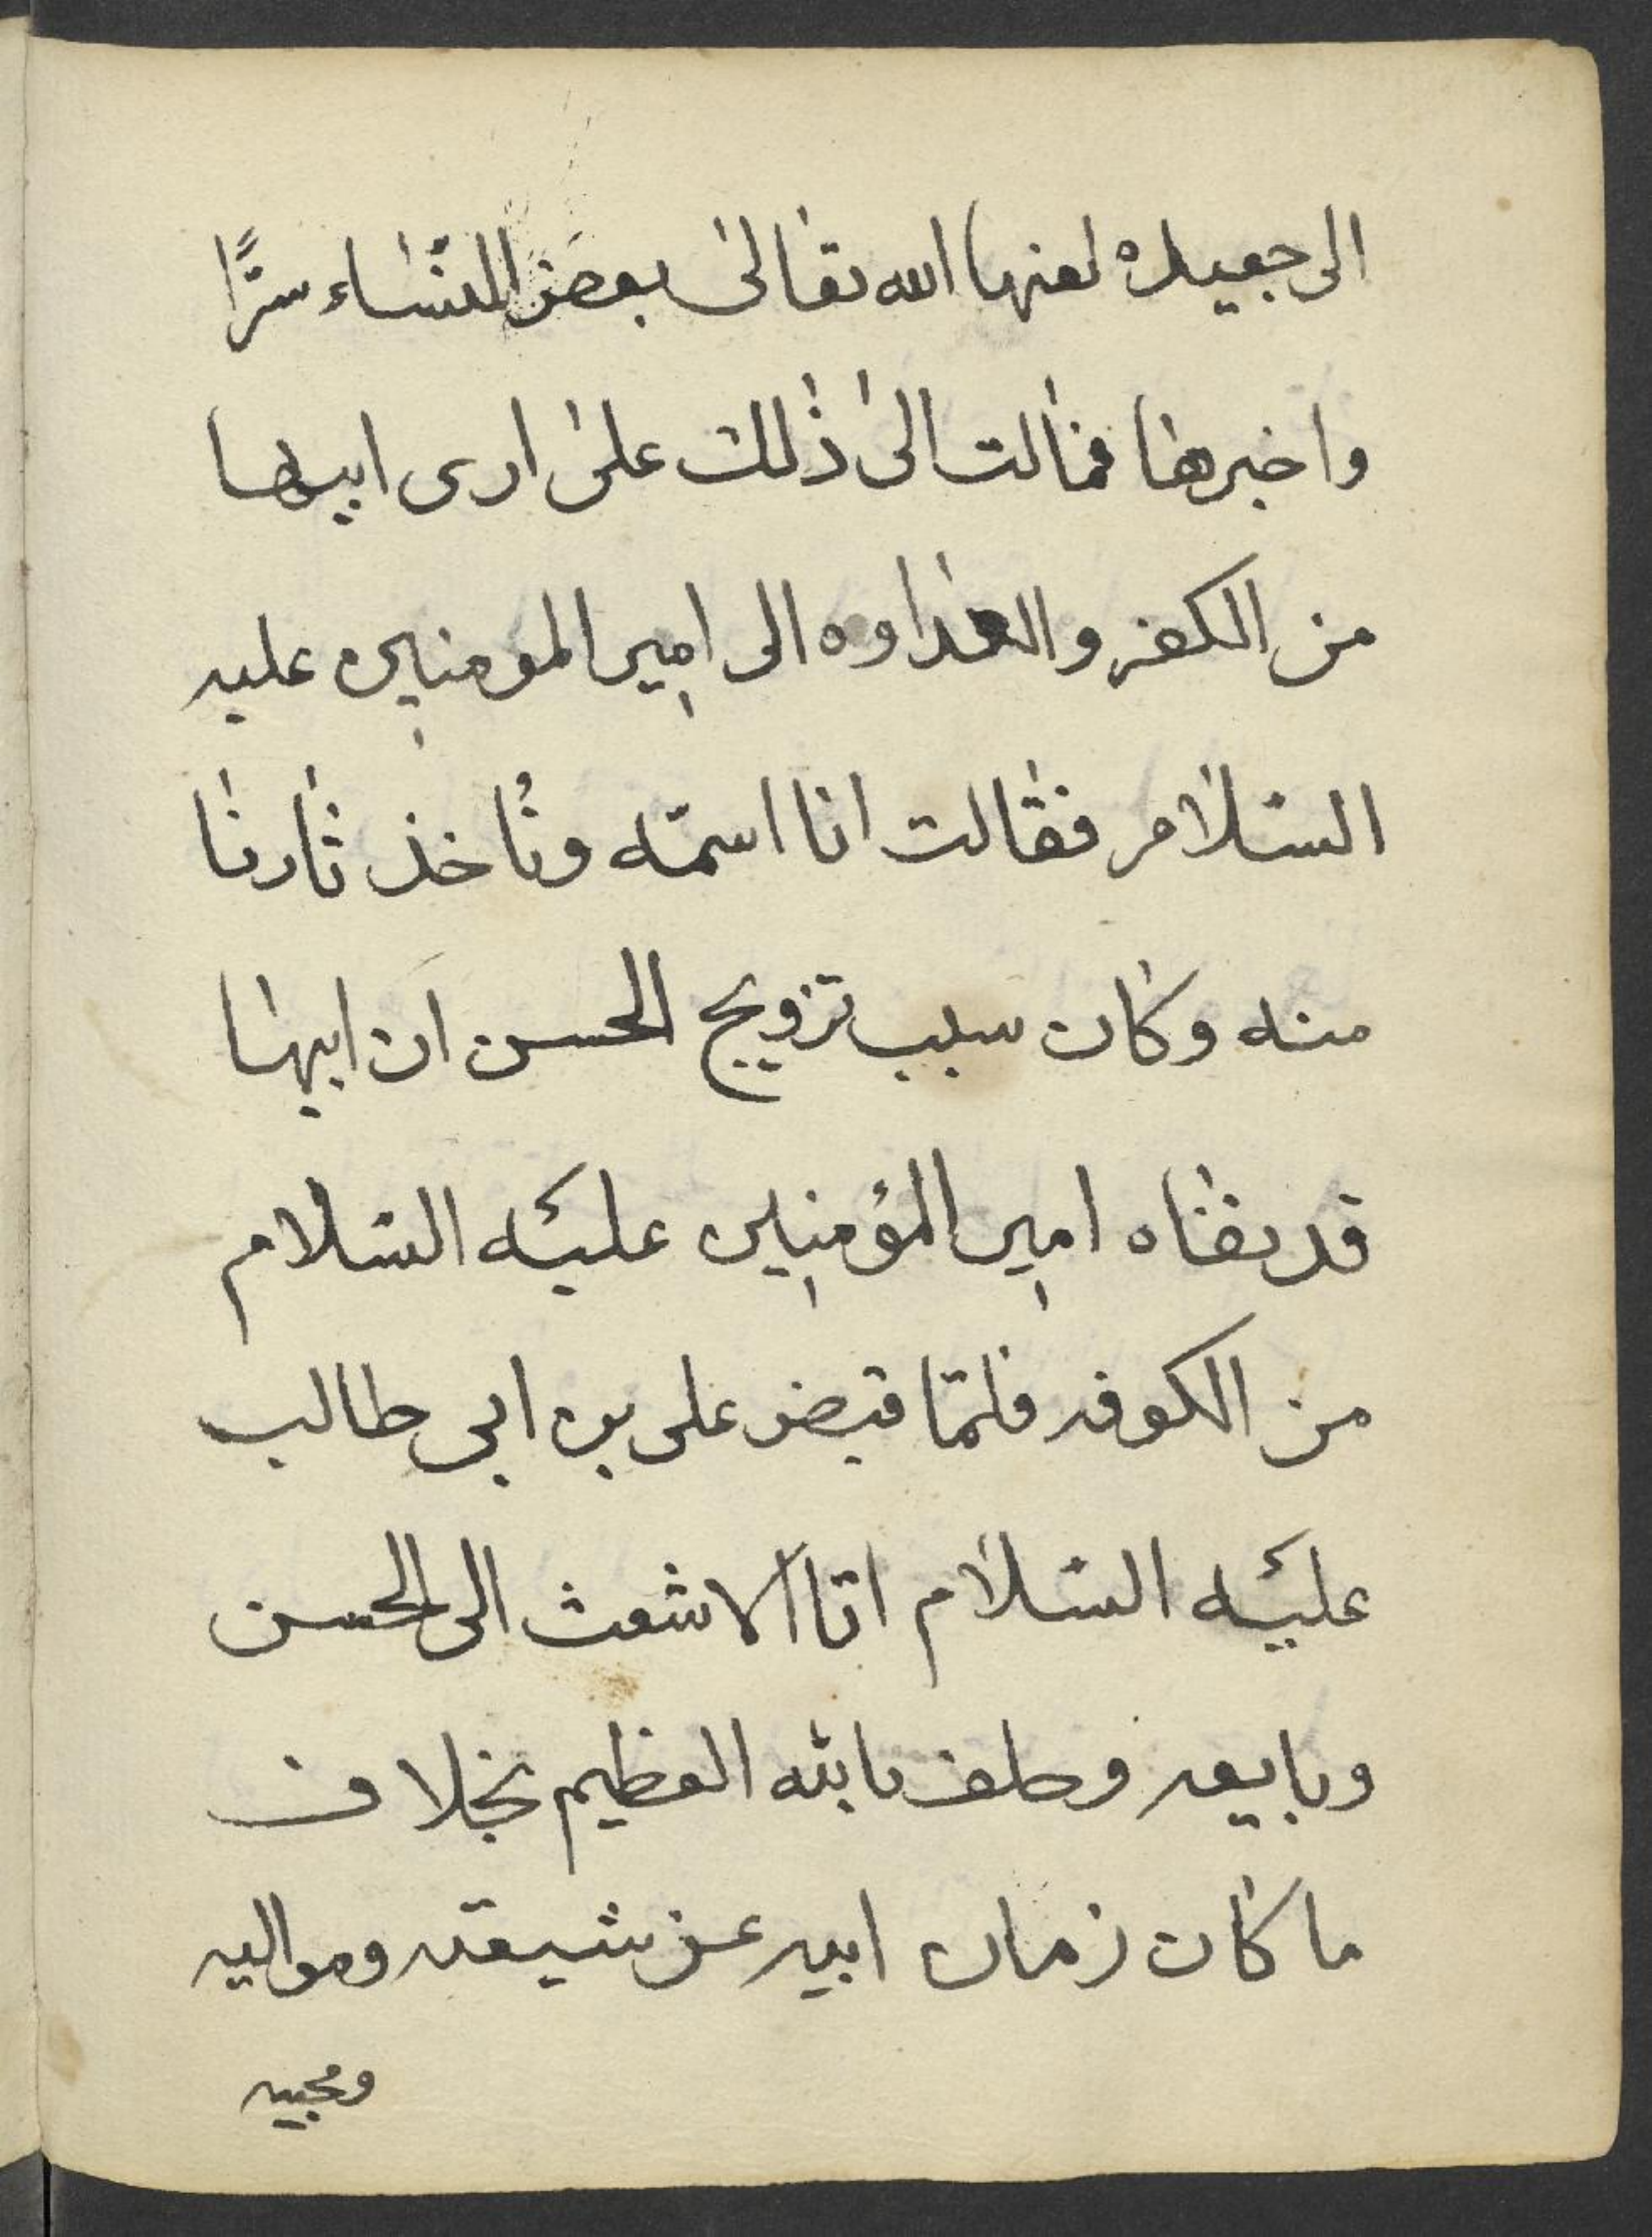 الى جعيده لعنها الله تعالى بعض النساء سرًّا
واخبرها فمالت الى ذلك على ارى ابيها
من الكفر والعداوه الى امير المومنين عليه
السّلام فقالت انا اسمّه وناخذ ثارنا
منه وكان سبب تزويج الحسن ان ابيها
قد نفاه امير المؤمنين عليه السّلام
من الكوفه فلمّا قبض على بن ابى طالب
عليه السّلام اتا الاشعث الى الحسن
وبايعه وحلف بالله العظيم بخلاف
ما كان زمان ابيه عن شيعته ومواليه
ومحبيه